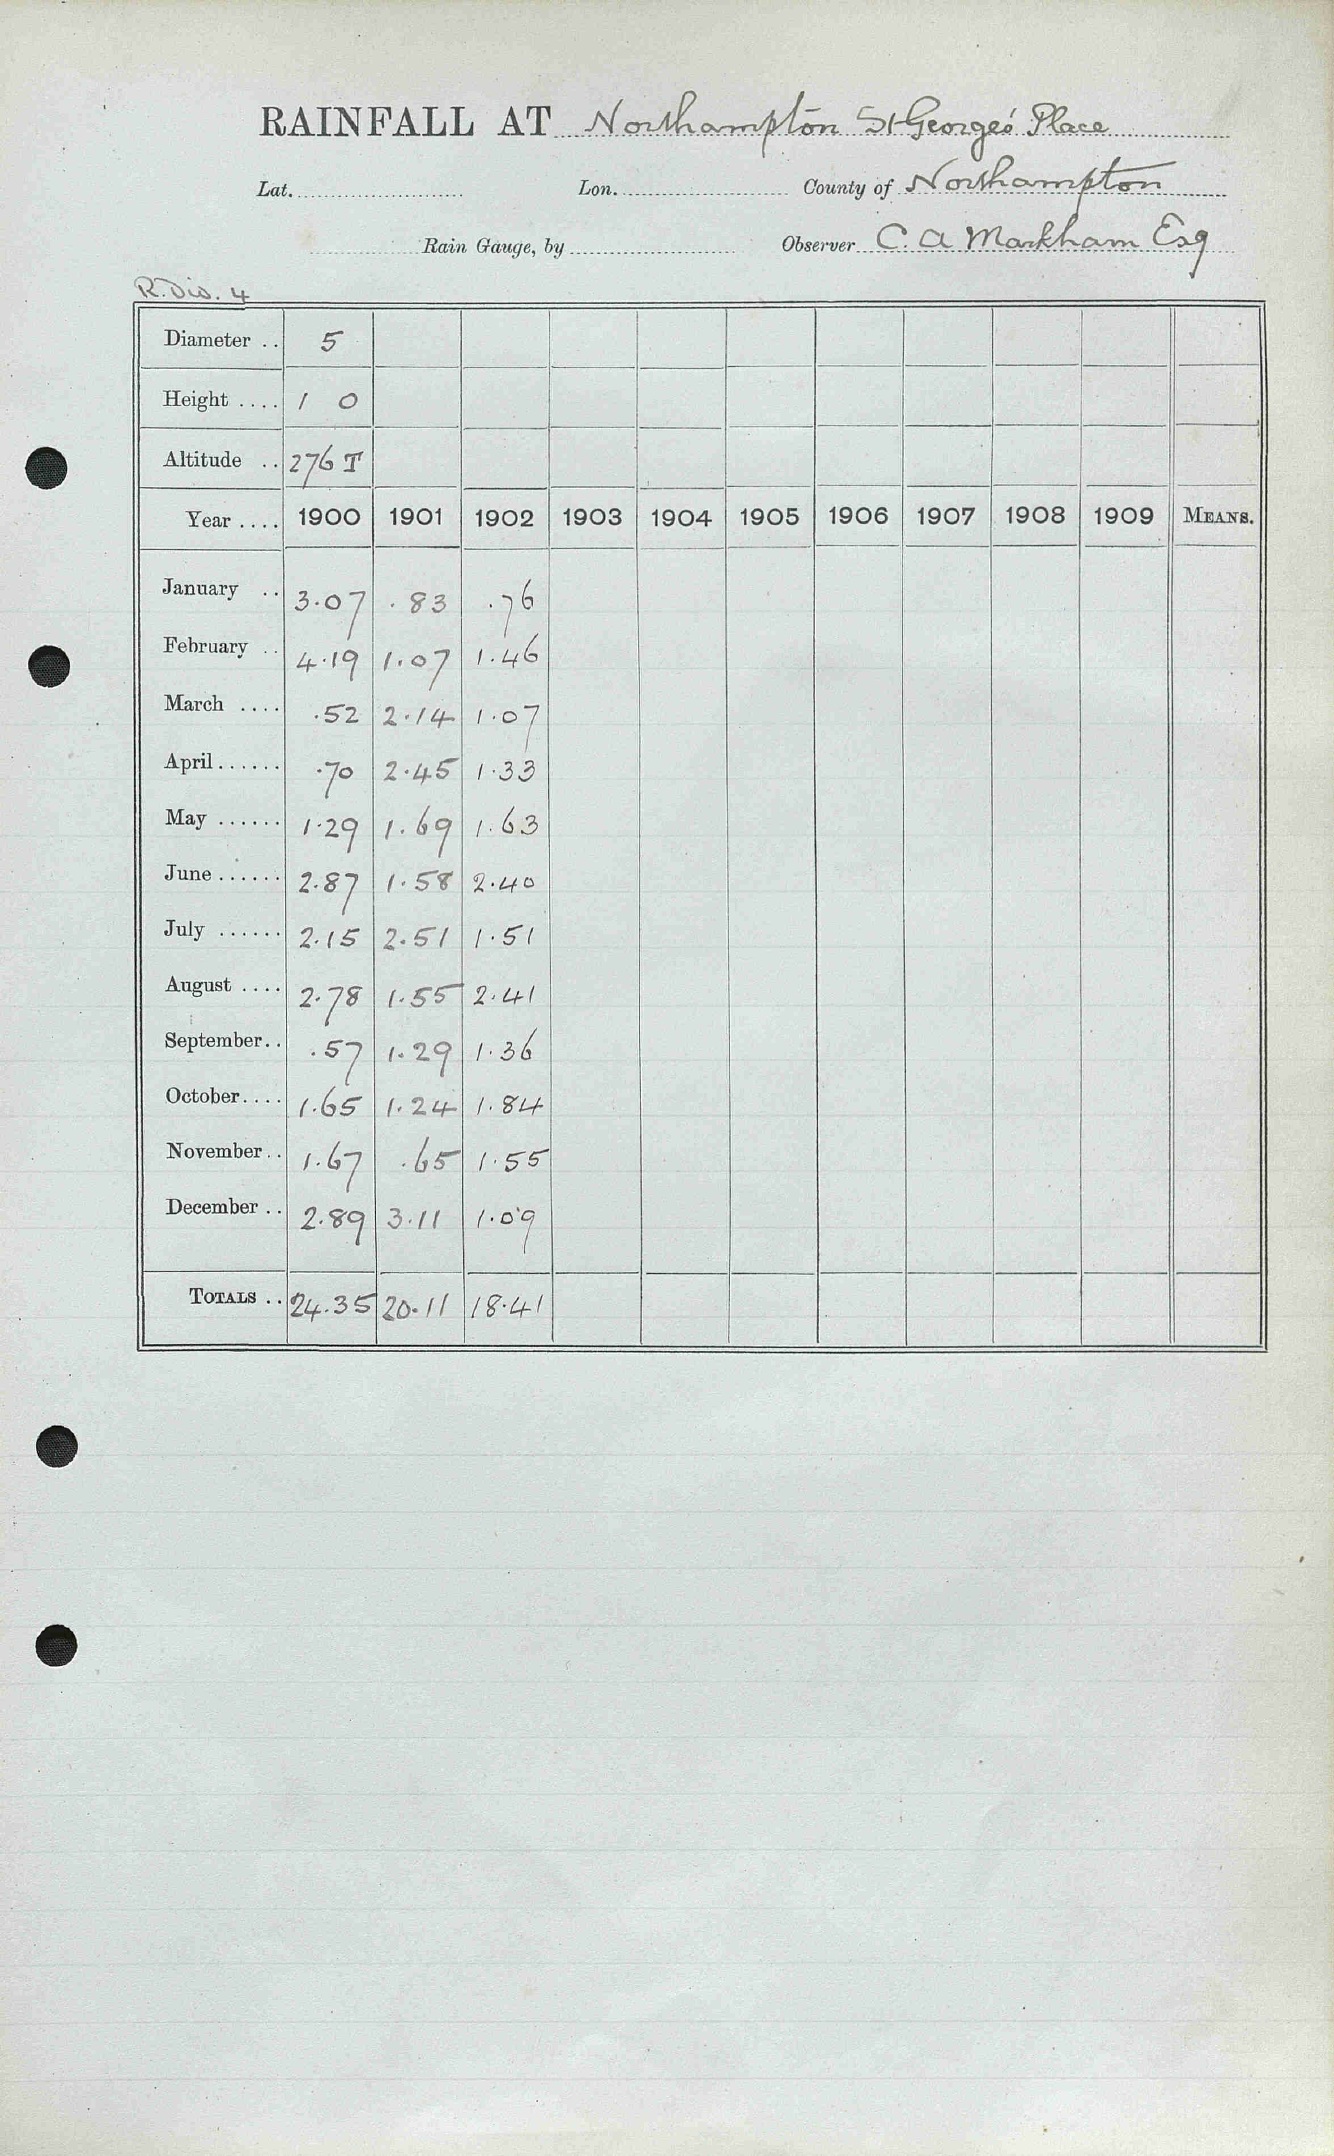 RAINFALL AT Northampton St George's Place
Lat. Lon. County of Northampton
Rain Gauge, by Observer C. A Markham Esq
R. Div. 4
Diameter .. 5
Height .... 1 0
Altitude .. 276 T
Year .... 1900 1901 1902 1903 1904 1905 1906 1907 1908 1909 MEANS.
January .. 3.07 .83 .76
February .. 4.19 1.07 1.46
March .... .52 2.14 1.07
April...... .70 2.45 1.33
May ...... 1.29 1.69 1.63
June...... 2.87 1.58 2.40
July ...... 2.15 2.51 1.51
August .... 2.78 1.55 2.41
September.. .57 1.29 1.36
October.... 1.65 1.24 1.84
November.. 1.67 .65 1.55
December .. 2.89 3.11 1.09
TOTALS .. 24.35 20.11 18.41